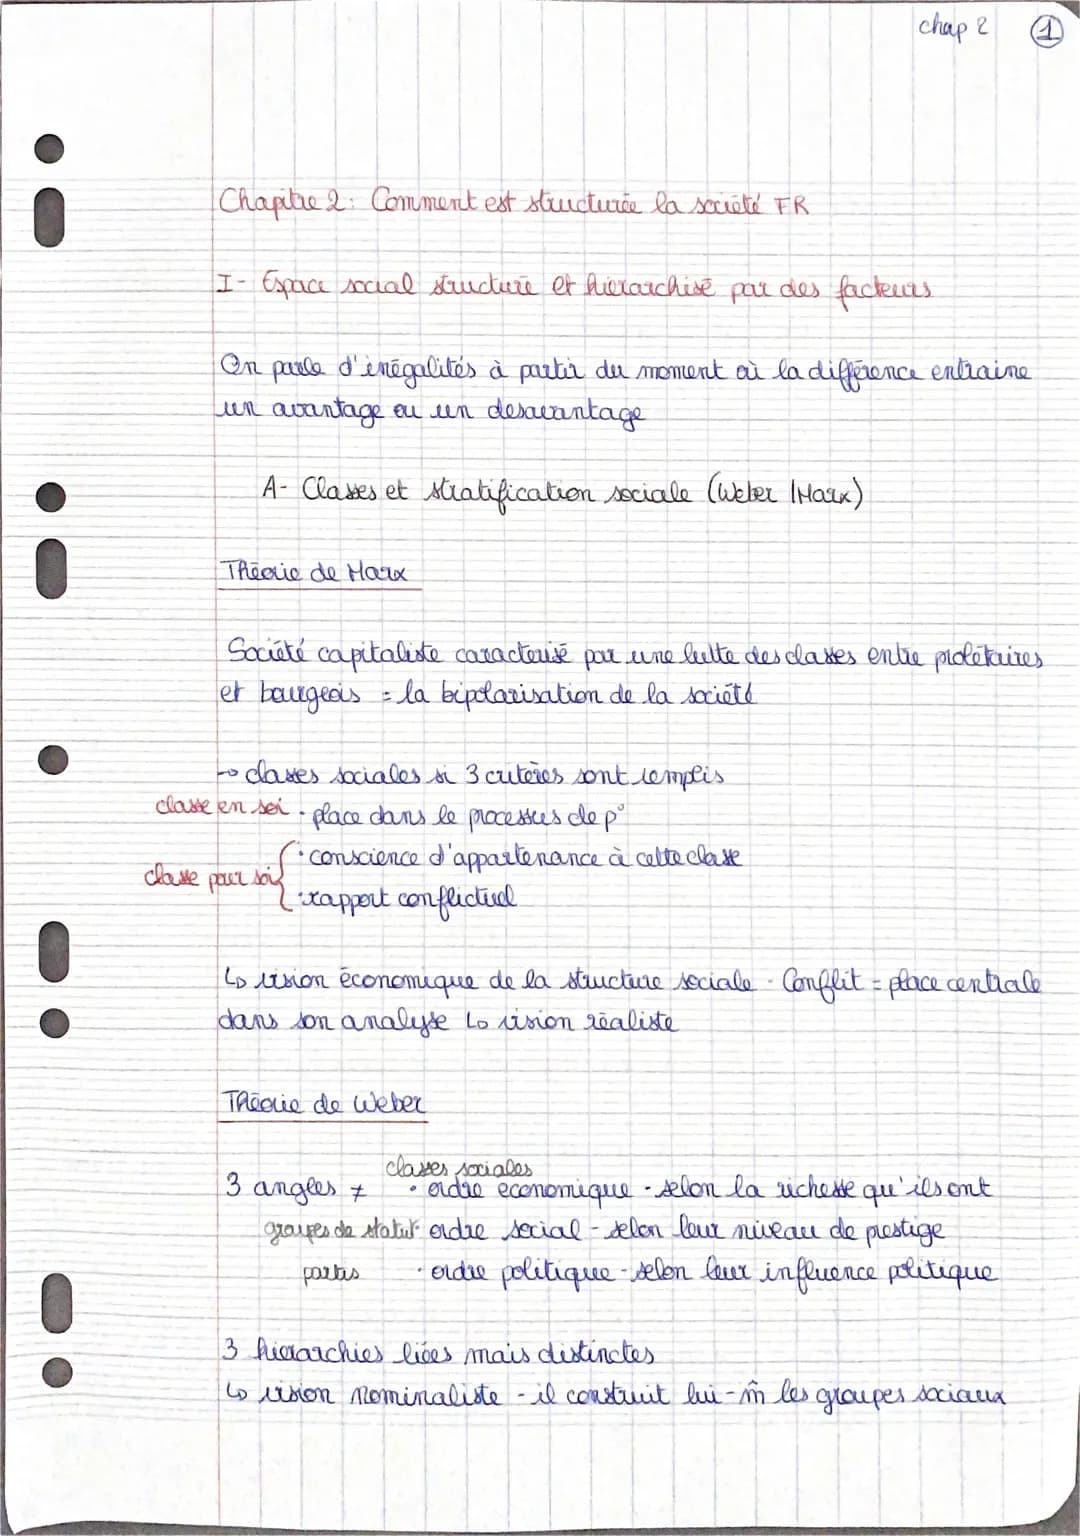 chap 2 1
Chapitre 2: Comment est structurée la société FR
I- Espace social structuré et hiérarchisé par des facteurs
On parle d'inégalités à partir du moment où la différence entraine
un avantage ou un desavantage
A- Classes et stratification sociale (Weber / Marx)
Théorie de Marx
Société capitaliste caractérisé par une lutte des classes entre prolétaires
et bourgeois = la bipolarisation de la société
→ classes sociales si 3 critères sont remplis
classe en soi · place dans le processus de p°
· conscience d'appartenance à cette classe
classe pour soi
· rapport conflictuel
↳ vision économique de la structure sociale - Conflit = place centrale
dans son analyse ↳ vision réaliste
Théorie de Weber
classes sociales
3 angles ≠ · ordre économique - selon la richesse qu'ils ont
groupes de statut · ordre social - selon leur niveau de prestige
partis · ordre politique - selon leur influence politique
3 hiérarchies liées mais distinctes
↳ vision nominaliste - il construit lui-m̂ les groupes sociaux